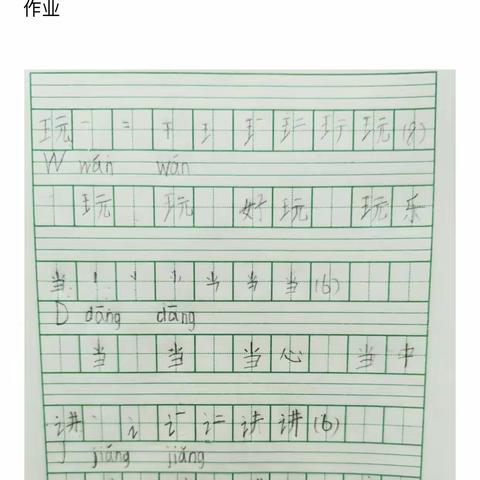 作业
玩 一 二 干 王 王一 王二 玩 玩 (8)
W wán wán
玩 玩 好玩 玩乐
当 丨 丷 ⺌ 当 当 当 (6)
D dāng dāng
当 当 当心 当中
讲 丶 讠 讲 (6)
J jiǎng jiǎng